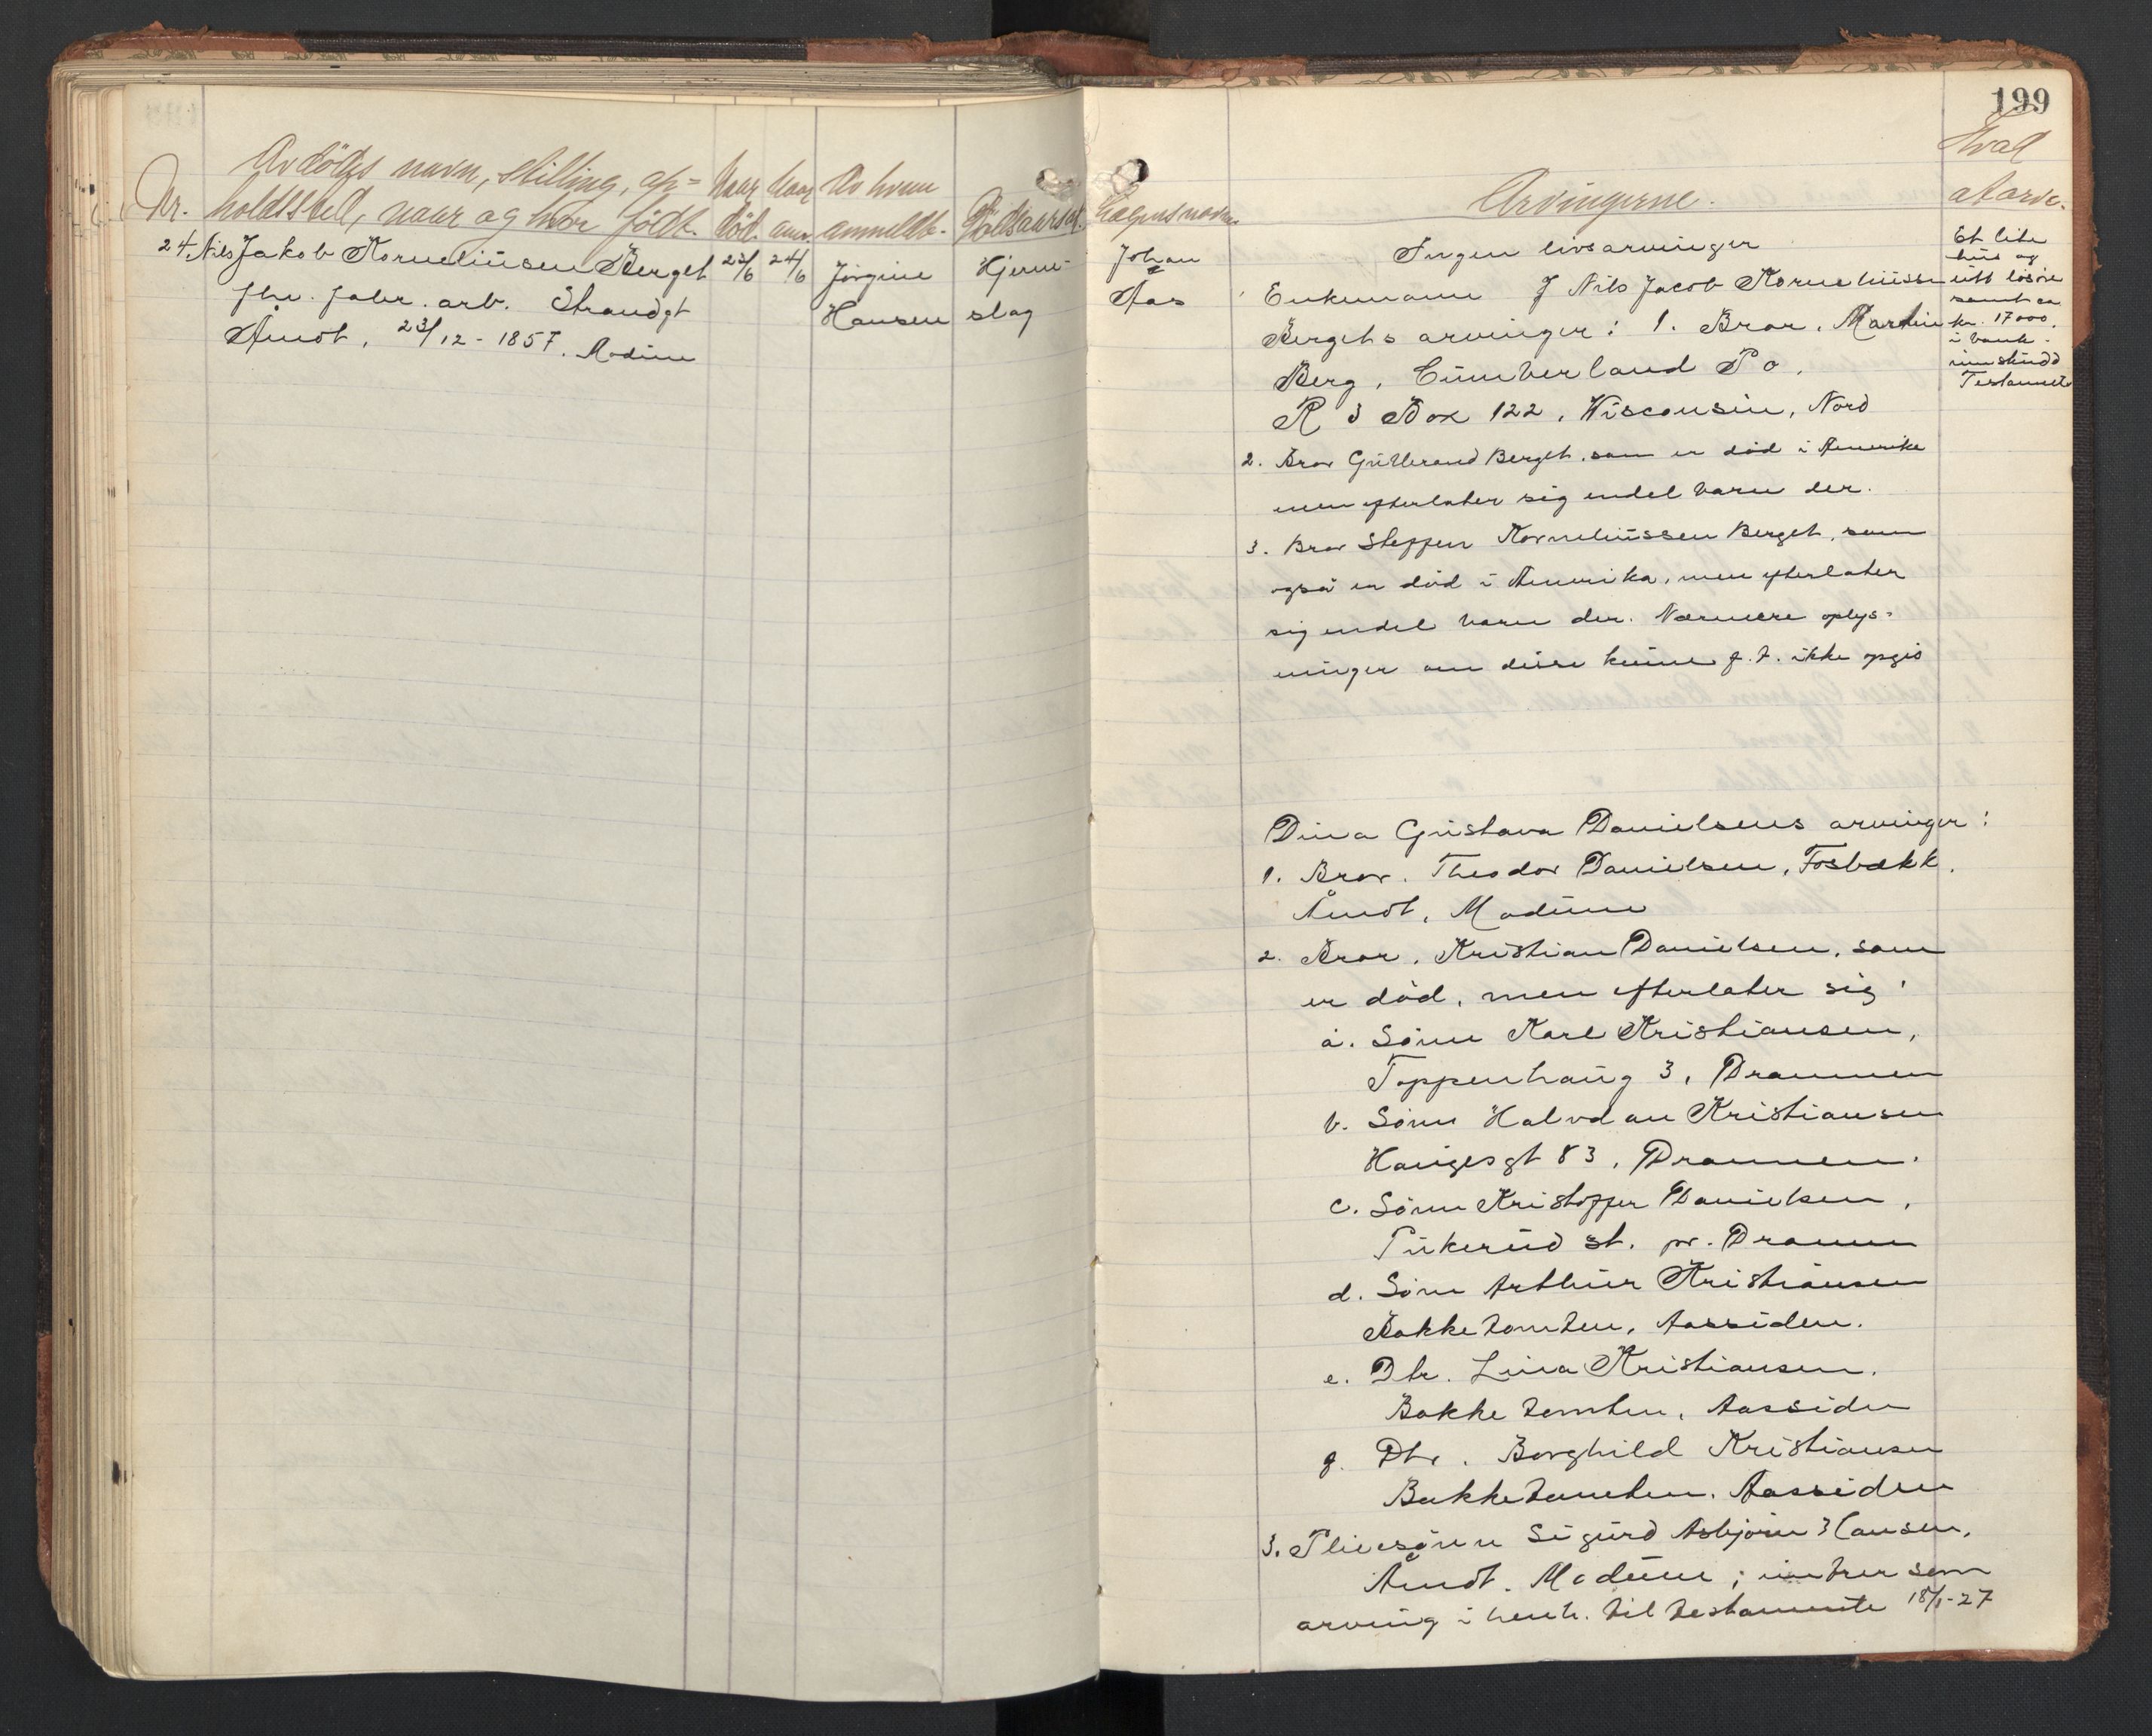 199
Avdödes navn, stilling, op=
Nr. holdssted, naar og hvor född.
Naar död.
Naar anm.
Av hvem anmeldt.
Dödsaarsak.
Lægens navn
Arvingerne.
Hvad
at arve.
24. Nils Jakob Korneliussen Berget
fhv. fabr. arb. Strandgt
Åmot, 23/12 - 1857. Modum
23/6
24/6
Jörgine
Hansen
Hjerne-
slag
Johan
Aas
Ingen livsarvinger
Enkemann Nils Jacob Korneliussen
Bergets arvinger: 1. Bror. Martin
Berg, Cumberland P o.
R 3 Box 122, Wisconsin, Nord
2. Bror Gulbrand Berget, som er död i Amerika
men efterlater sig endel barn der.
3. Bror Steffen Korneliussen Berget, som
også er död i Amerika, men efterlater
sig endel barn der. Nærmere oplys=
ninger om disse kunne f. t. ikke opgis
Et lite
hus og
litt lösöre
samt ca
kr. 17000.
i bank-
innskudd
Testamente
Dina Gustava Danielsens arvinger:
1. Bror. Theodor Danielsen, Fosbækk.
Åmot, Modum
2. Bror, Kristian Danielsen, som
er död, men efterlater sig:
a. Sönn Karl Kristiansen,
Toppenhaug 3, Drammen
b. Sönn Halvdan Kristiansen
Haugesgt 83, Drammen.
c. Sönn Kristoffer Danielsen,
Pukerud st. pr. Drammen
d. Sönn Arthur Kristiansen
Bakketomten, Aassiden.
e. Dtr. Lina Kristiansen.
Bakketomten, Aassiden
f. Dtr. Borghild Kristiansen
Bakketomten. Aassiden
3. Pleiesönn Sigurd Asbjörn Hansen,
Åmot. Modum; inntrer som
arving i henh. til testamente 18/1-27